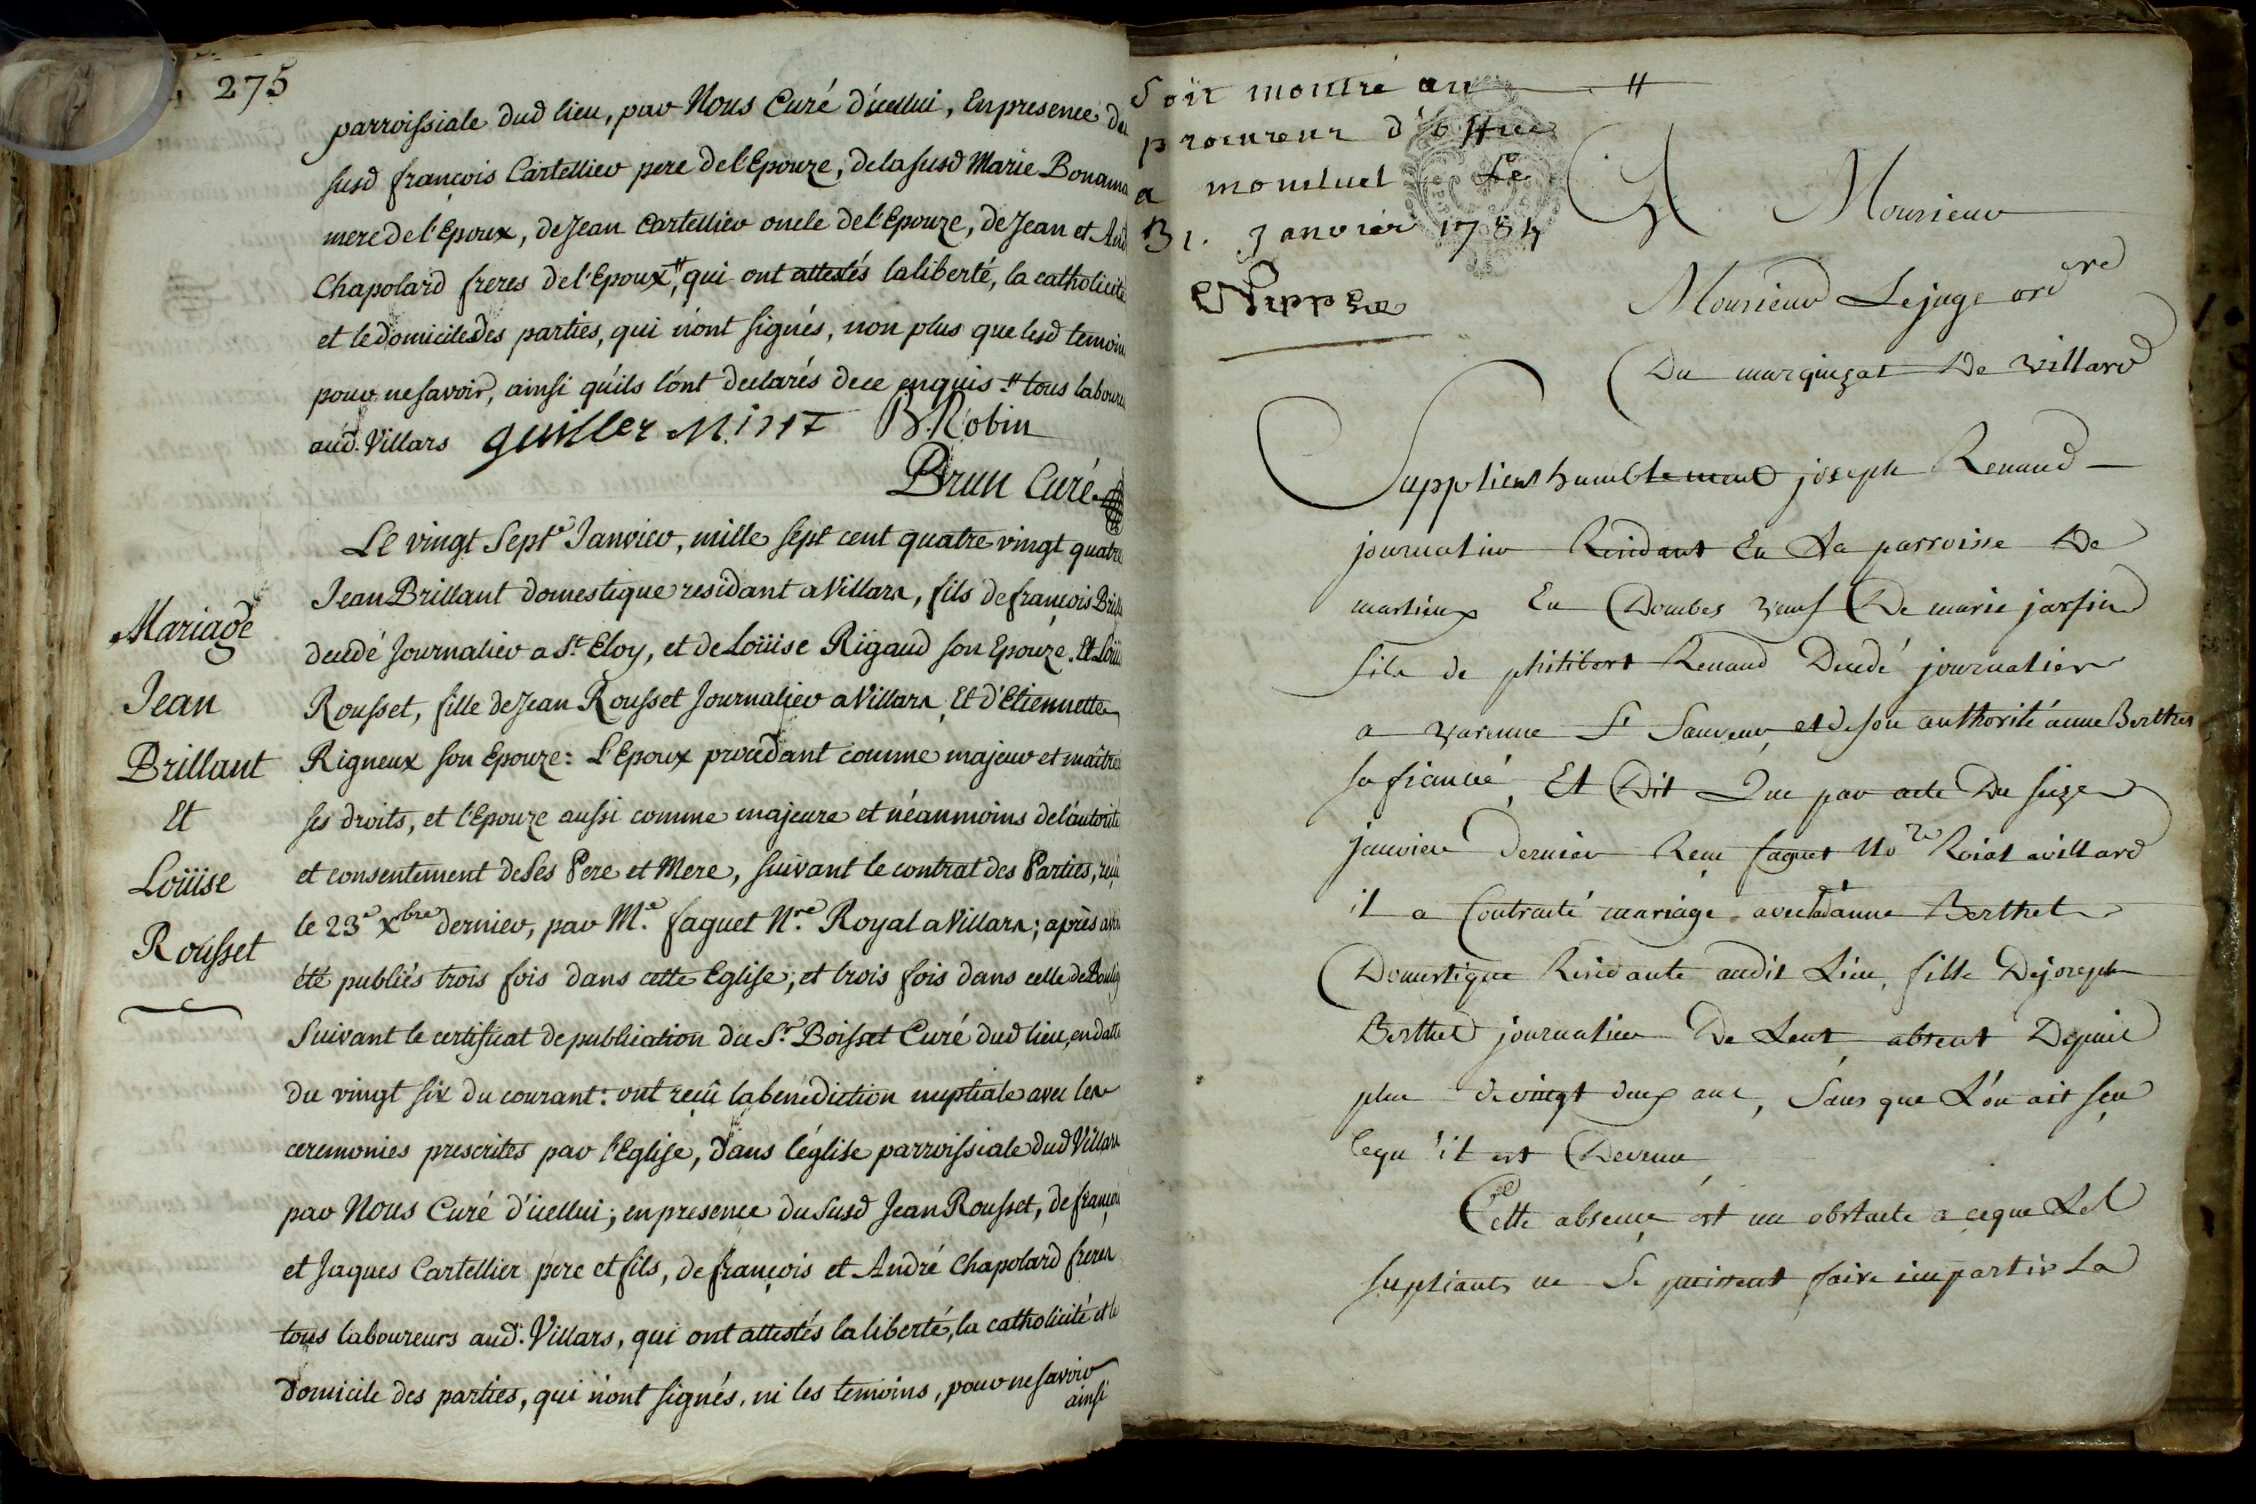 275
parroissiale dud lieu, par Nous Curé d'icellui, En presence du
susd françois Cartellier pere de l'Epouze, de la susd Marie Bonama
mere de l'Epoux, de Jean Cartellier oncle de l'Epouze, de Jean et And
Chapolard freres de l'Epoux,# qui ont attestés la liberté, la catholicité
et le domicile des parties, qui n'ont signés, non plus que lesd temoin
pour ne savoir, ainsi qu'ils l'ont declarés de ce enquis .# tous labour
aud. Villars quiller B. Robin
Brun Curé
Mariage
Jean
Brillant
Et
Loüise
Rousset
Le vingt Sept Janvier, mille sept cent quatre vingt quatre
Jean Brillant domestique residant a Villars, fils de françois Brill
decedé Journalier a St. Eloy, et de Loüise Rigaud son Epouze. Et Loüi
Rousset, fille de Jean Rousset Journalier a Villars, Et d'Etiennette
Rigneux son Epouze: L'Epoux procedant comme majeur et maître
ses droits, et l'Epouze aussi comme majeure et néanmoins de l'autorité
et consentement de Ses Pere et Mere, suivant le contrat des Parties, reçu
le 23e Xbre dernier, par Me. faguet Nre. Royal a Villars; après avoi
été publiés trois fois dans cette Eglise; et trois fois dans celle de Boulig
Suivant le certificat de publication du Sr. Boisset Curé dud lieu, en datte
du vingt six du courant: ont reçû la bénédiction nuptiale avec les
ceremonies prescrites par l'Eglise, dans l'église parroissiale dud Villars
par Nous Curé d'icellui; en presence du susd Jean Rousset, de françoi
et Jaques Cartellier pere et fils, de françois et André Chapolard freres
tous laboureurs aud. Villars, qui ont attestés la liberté, la catholicité et le
domicile des parties, qui n'ont signés, ni les temoins, pour ne savoir
ainsi
Soit montré au #
procureur d'office
a montluel Le
31. Janvier 1784
A Monsieur
Monsieur Le juge ordre
Du marquizat De villard
Supplient humblement joseph Renaud
journalier Residant En La parroisse De
marlieux En Dombes veuf De marie jarsin
fils de philibert Renaud Decedé journalier
a varenne St Sauveur, et de son authorité anne Berthet
sa fiancée, Et Dit Que par acte Du seize
janvier Dernier Reçu faguet Nore Roial a villard
il a Contracté mariage avec lad anne Berthet
Domestique Residante audit Lieu, fille De joseph
Berthet journalier De Lent absent Depuis
plus de vingt deux ans, Sans que L'on ait sçu
ce qu'il est Devenu
Cette absence est un obstacle a ce que Les
supliants ne Se puissent faire impartir La